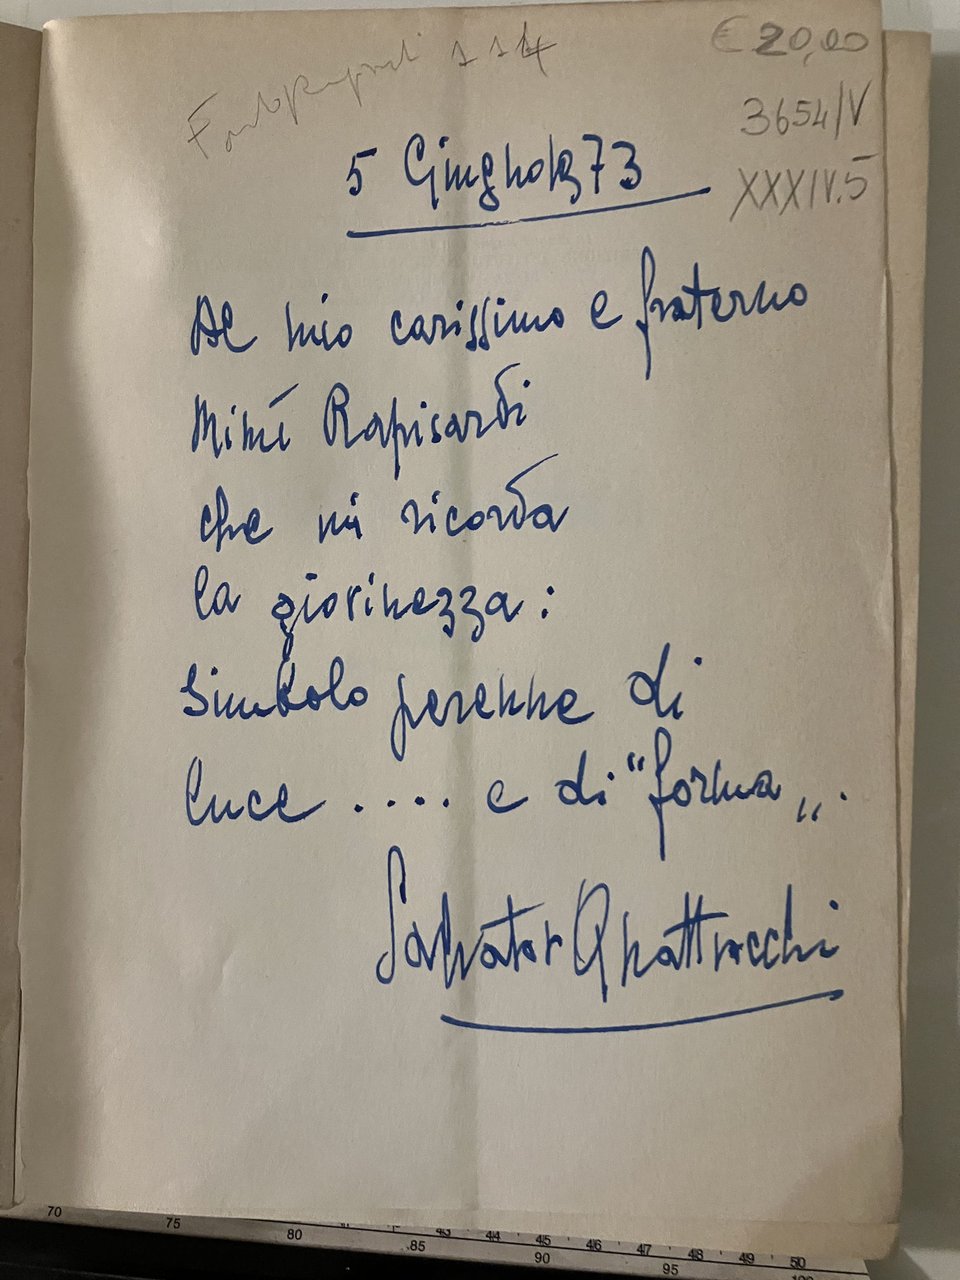 Fondo Rapisardi 114
€ 20,00
3654/V
XXXIV.5
5 Giugno 1973
Al mio carissimo e fraterno
Mimì Rapisardi
che mi ricorda
la giovinezza:
Simbolo perenne di
luce .... e di "forma„.
Salvator Quattrocchi
70 75 80 85 90 95 100
43 44 45 46 47 48 49 50